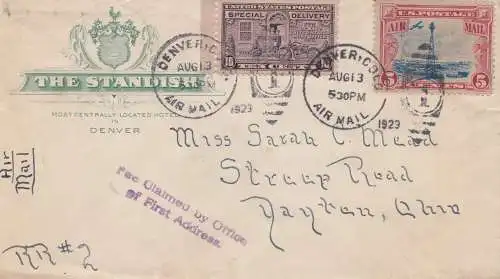 THE STANDISH
MOST CENTRALLY LOCATED HOTEL
IN
DENVER
UNITED STATES POSTAGE
SPECIAL DELIVERY
10
U.S. POSTAGE
AIR MAIL
5 5
DENVER, COLO.
AUG 13
PM
AIR MAIL
1929
DENVER, COLO.
AUG 13
530PM
AIR MAIL
1929
Air
Mail
Miss Sarah C. Mead
Stroop Road
Dayton, Ohio
Fee Claimed by Office
of First Address.
RR#2